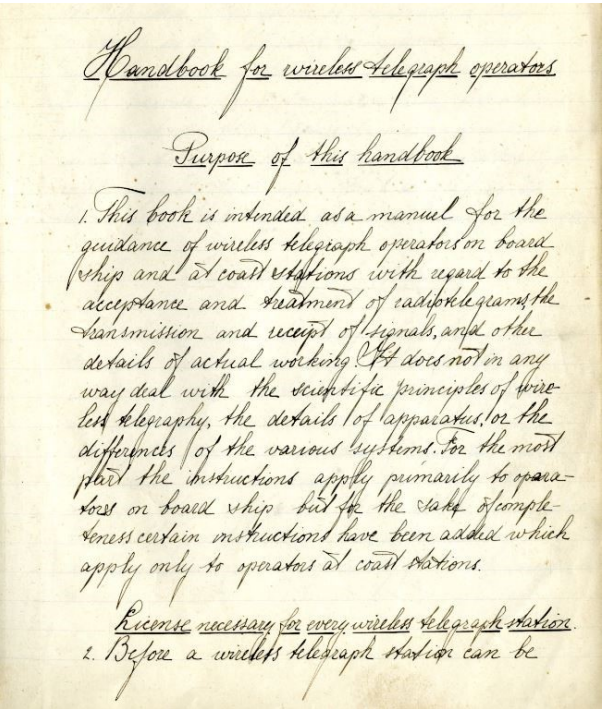 Handbook for wireless telegraph operators
Purpose of this handbook
1. This book is intended as a manuel for the
guidance of wireless telegraph operators on board
ship and at coast stations with regard to the
acceptance and treatment of radiotelegrams, the
transmission and receipt of signals, and other
details of actual working. It does not in any
way deal with the scientific principles of wire-
less telegraphy, the details of apparatus, or the
differences of the various systems. For the most
part the instructions apply primarily to opara-
tors on board ship but for the sake of comple-
teness certain instructions have been added which
apply only to operators at coast stations.
License necessary for every wireless telegraph station.
2. Before a wireless telegraph station can be